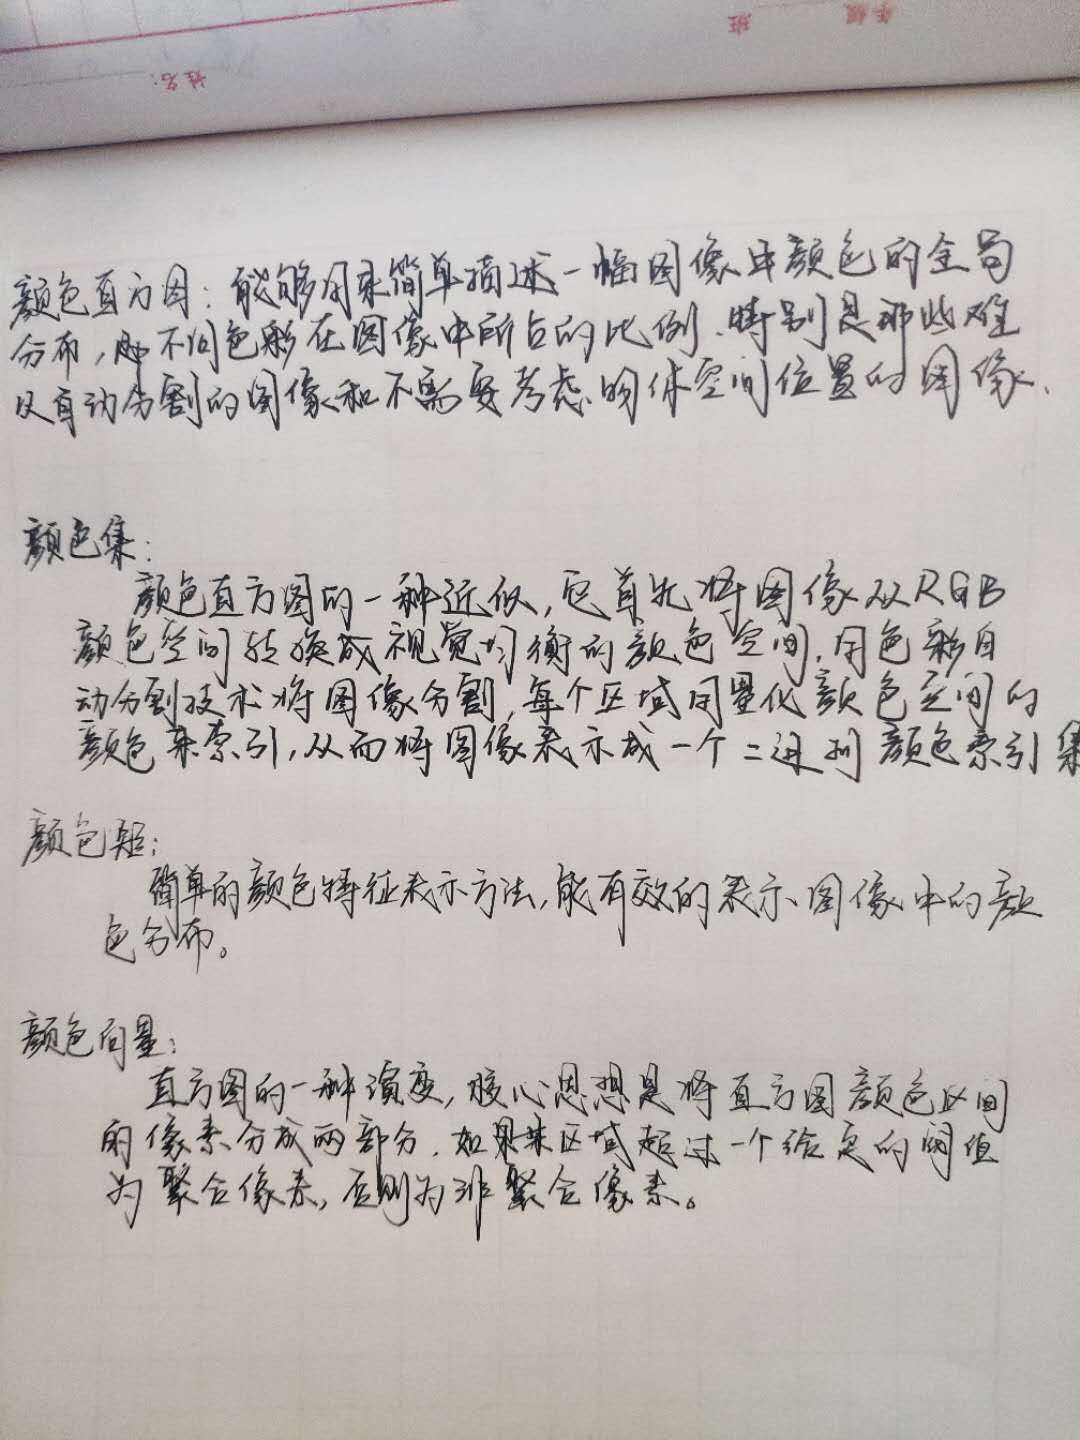 年级
班
姓名:
颜色直方图：能够用来简单描述一幅图像中颜色的全局
分布，即不同色彩在图像中所占的比例、特别是那些难
以自动分割的图像和不需要考虑物体空间位置的图像、
颜色集：
颜色直方图的一种近似，它首先将图像从RGB
颜色空间转换成视觉均衡的颜色空间，用色彩自
动分割技术将图像分割，每个区域用量化颜色空间的
颜色来索引，从而将图像表示成一个二进制颜色索引集
颜色矩：
简单的颜色特征表示方法，能有效的表示图像中的颜
色分布。
颜色向量：
直方图的一种演变，核心思想是将直方图颜色区间
的像素分成两部分、如果某区域超过一个给定的阈值
为聚合像素，否则为非聚合像素。